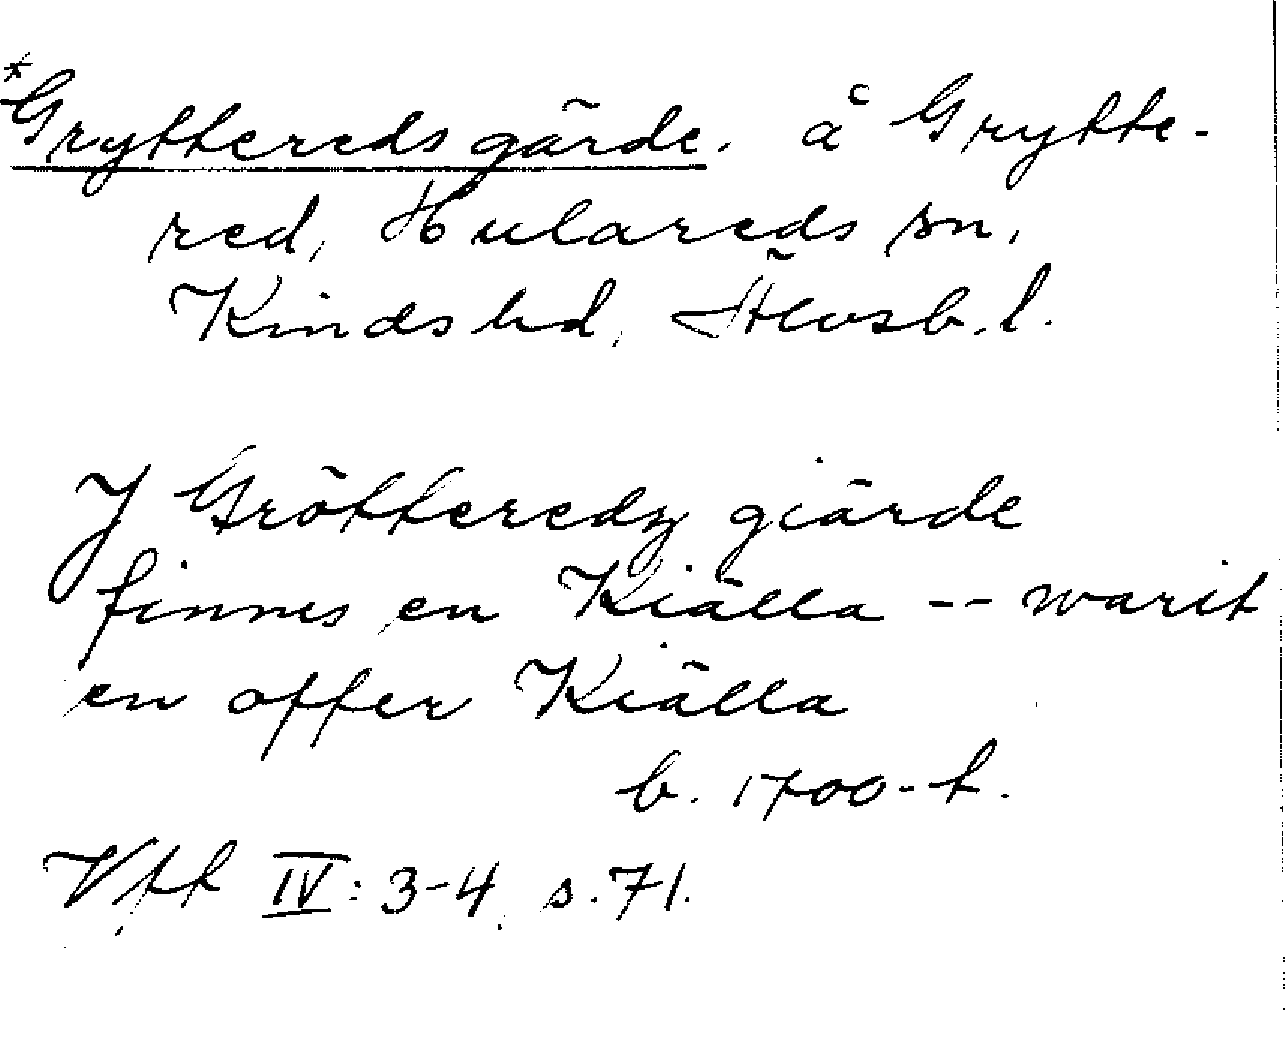 *Grytteredsgärde. å Grytte-
red, Hulareds sn,
Kinds hd, Älvsb. l.
J Grötteredz giärde
finnes en Kiälla -- warit
en offer Kiälla
b. 1700-t.
Vft IV: 3-4, s. 71.